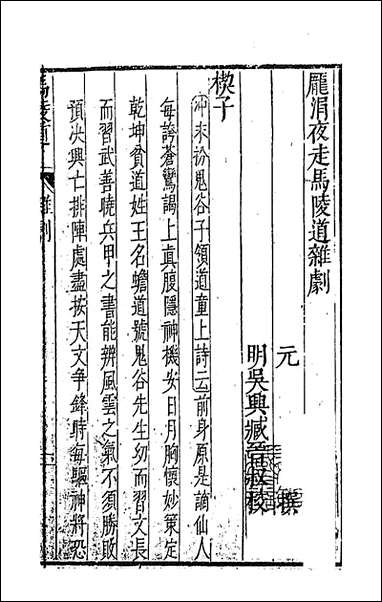 龎涓夜走馬陵道雜劇
元
撰
明吳興臧晉叔校
楔子
冲末扮鬼谷子領道童上詩云前身原是謫仙人
每誇蒼鸞謁上真腹隱神機安日月胸懷妙策定
乾坤貧道姓王名蟾道號鬼谷先生幼而習文長
而習武善曉兵甲之書能辨風雲之氣不須勝敗
預決興亡排陣處盡按天文爭鋒時每驅神將恐
馬陵道
雜劇
一